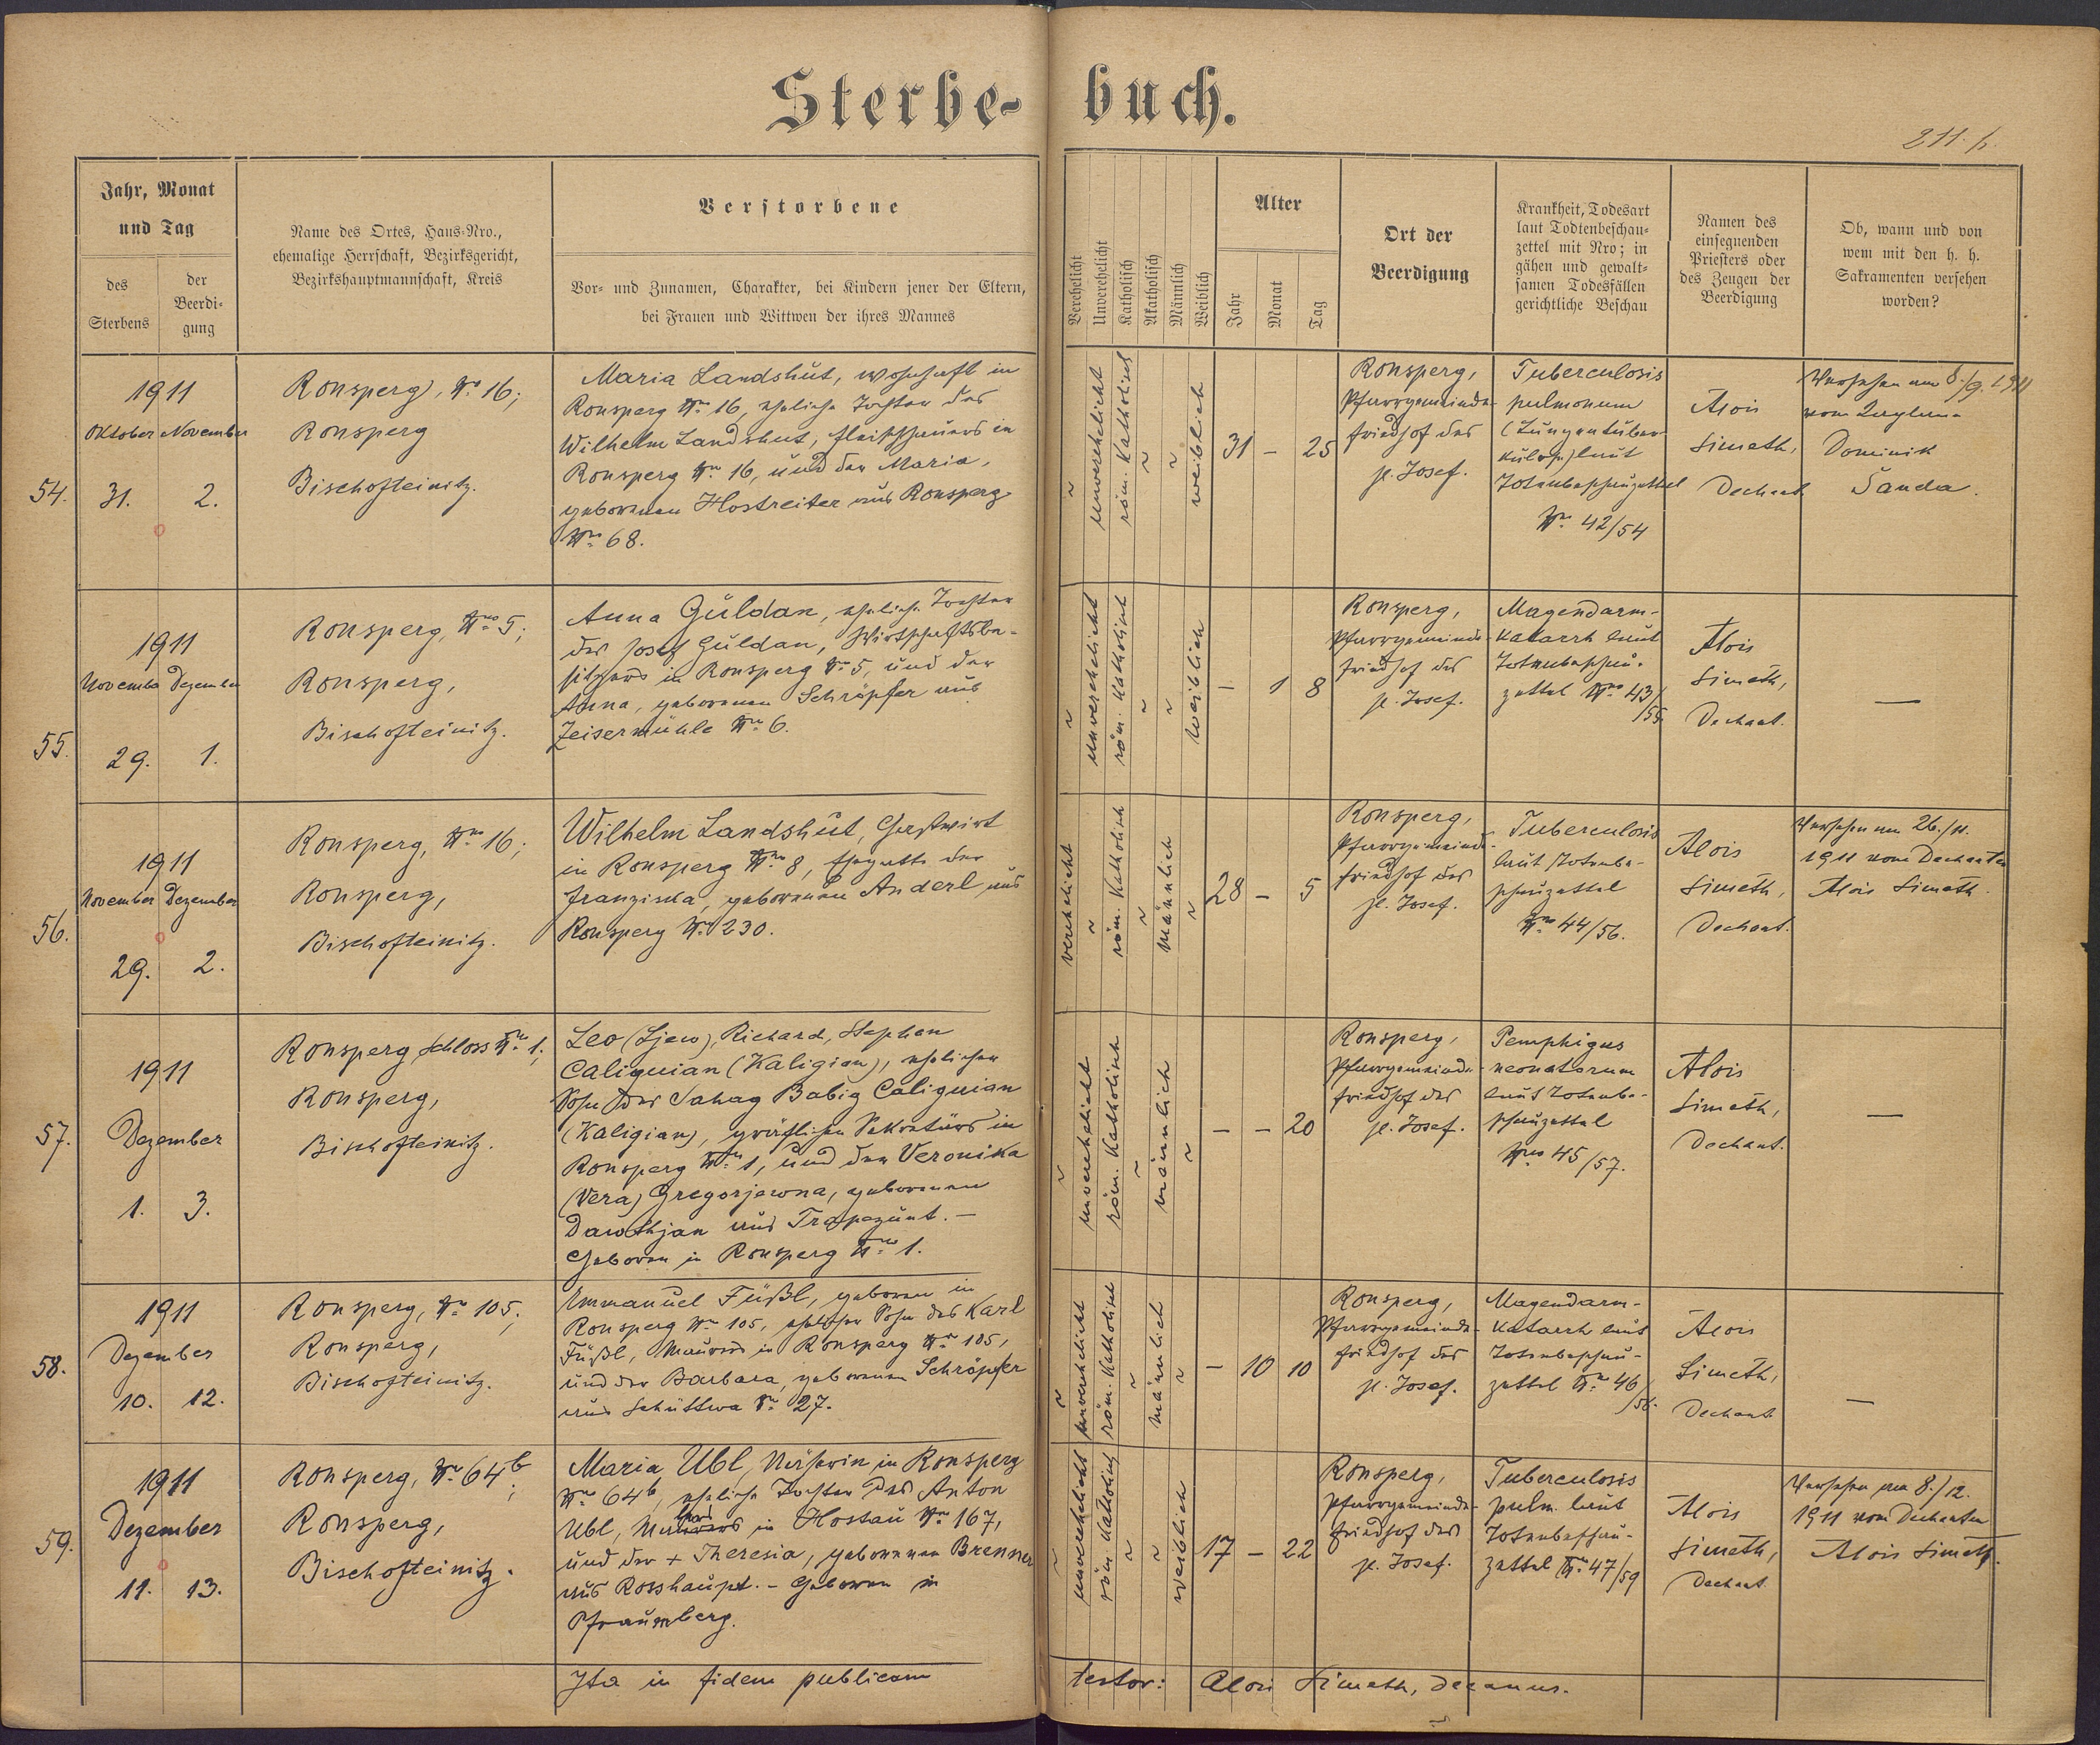 Sterbe-buch.
211. b.
Jahr, Monat
und Tag
des
Sterbens
der
Beerdi-
gung
Name des Ortes, Haus-Nro.,
ehemalige Herrschaft, Bezirksgericht,
Bezirkshauptmannschaft, Kreis
Verstorbene
Vor- und Zunamen, Charakter, bei Kindern jener der Eltern,
bei Frauen und Wittwen der ihres Mannes
Verehelicht
Unverehelicht
Katholisch
Akatholisch
Männlich
Weiblich
Alter
Jahr
Monat
Tag
Ort der
Beerdigung
Krankheit, Todesart
laut Todtenbeschau-
zettel mit Nro; in
gähen und gewalt-
samen Todesfällen
gerichtliche Beschau
Namen des
einsegnenden
Priesters oder
des Zeugen der
Beerdigung
Ob, wann und von
wem mit den h. h.
Sakramenten versehen
worden?
54.
1911
Oktober November
31. 2.
Ronsperg, Nro 16;
Ronsperg
Bischofteinitz.
Maria Landshut, wohnhaft in
Ronsperg Nro 16, eheliche Tochter des
Wilhelm Landshut, Fleischhauers in
Ronsperg Nro 16, und der Maria,
geborenen Hostreiter aus Ronsperg
Nro 68.
~
unverehelicht
röm. katholisch
~
~
weiblich
31 – 25
Ronsperg,
Pfarrgemeinde-
friedhof des
hl. Josef.
Tuberculosis
pulmonum
(Lungentuber-
kulose) laut
Totenbeschauzettel
Nro 42/54
Alois
Simeth,
Dechant
Versehen am 8./9. 1911
vom
Dominik
Šanda.
55.
1911
November Dezember
29. 1.
Ronsperg, Nro 5;
Ronsperg,
Bischofteinitz.
Anna Güldan, eheliche Tochter
des Josef Güldan, Wirtschaftsbe-
sitzers in Ronsperg Nr. 5, und der
Anna, geborenen Schröpfer aus
Zeisermühle Nro 6.
~
unverehelicht
röm. katholisch
~
~
weiblich
– 1 8
Ronsperg,
Pfarrgemeinde-
friedhof des
hl. Josef.
Magendarm-
katarrh laut
Totenbeschau-
zettel Nro 43/
/55.
Alois
Simeth,
Dechant.
—
56.
1911
November Dezember
29. 2.
Ronsperg, Nro 16;
Ronsperg,
Bischofteinitz.
Wilhelm Landshut, Gastwirt
in Ronsperg Nro 8, Ehegatte der
Franziska, geborenen Anderl aus
Ronsperg Nr. 230.
verehelicht
~
röm. katholisch
~
männlich
~
28 – 5
Ronsperg,
Pfarrgemeinde-
friedhof des
hl. Josef.
Tuberculosis
laut Totenbe-
schauzettel
Nro 44/56.
Alois
Simeth,
Dechant.
Versehen am 26./11.
1911 vom Dechanten
Alois Simeth.
57.
1911
Dezember
1. 3.
Ronsperg Schloss Nro 1;
Ronsperg,
Bischofteinitz.
Leo (Ljew), Richard, Stephan
Caliguian (Kaligian), ehelicher
Sohn des Sahag Babig Caliguian
(Kaligian), gräflichen Sekretärs in
Ronsperg Nro 1, und der Veronika
(Vera) Gregorjewna, geborenen
Dawthjan aus Trapezunt. –
Geboren in Ronsperg Nro 1.
~
unverehelicht
röm. katholisch
~
männlich
~
– – 20
Ronsperg,
Pfarrgemeinde-
friedhof des
hl. Josef.
Pemphigus
neonatorum
laut Totenbe-
schauzettel
Nro 45/57.
Alois
Simeth,
Dechant.
—
58.
1911
Dezember
10. 12.
Ronsperg, Nro 105;
Ronsperg,
Bischofteinitz.
Emmanuel Füßl, geboren in
Ronsperg Nro 105, ehelicher Sohn des Karl
Füßl, Maurers in Ronsperg Nro 105,
und der Barbara, geborenen Schröpfer
aus Schüttwa Nr. 27.
~
unverehelicht
röm. katholisch
~
männlich
~
– 10 10
Ronsperg,
Pfarrgemeinde-
friedhof des
hl. Josef.
Magendarm-
katarrh laut
Totenbeschau-
zettel Nro 46/
/58.
Alois
Simeth,
Dechant
—
59.
1911
Dezember
11. 13.
Ronsperg, Nro 64b;
Ronsperg,
Bischofteinitz.
Maria Ubl, Näherin in Ronsperg
Nro 64b, eheliche Tochter des Anton
Ubl, in Hostau Nro 167,
und der + Theresia, geborenen Brenner
aus Rosshaupt. – Geboren in
Pfraumberg.
~
unverehelicht
röm. katholisch
~
~
weiblich
17 – 22
Ronsperg,
Pfarrgemeinde-
friedhof des
hl. Josef.
Tuberculosis
pulm. laut
Totenbeschau-
zettel Nro 47/59
Alois
Simeth,
Dechant
Versehen am 8./12.
1911 vom Dechanten
Alois Simeth.
Ita in fidem publicam testor: Alois Simeth, decanus.